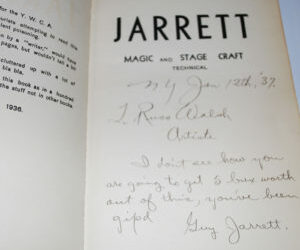 for the Y. W. C. A.
attempting to read this
poisoning.
by a "writer," would have
pages, but wouldn't tell a lot
cluttered up with a lot of
bla bla.
this book as in a hundred
the stuff not in other books.
1936.
JARRETT
MAGIC AND STAGE CRAFT
TECHNICAL
N Y Jan 12th, '37
L Russ Walsh
Artiste
I don't see how you
are going to get 5 bux worth
out of this, you've been
gipd
Guy Jarrett.